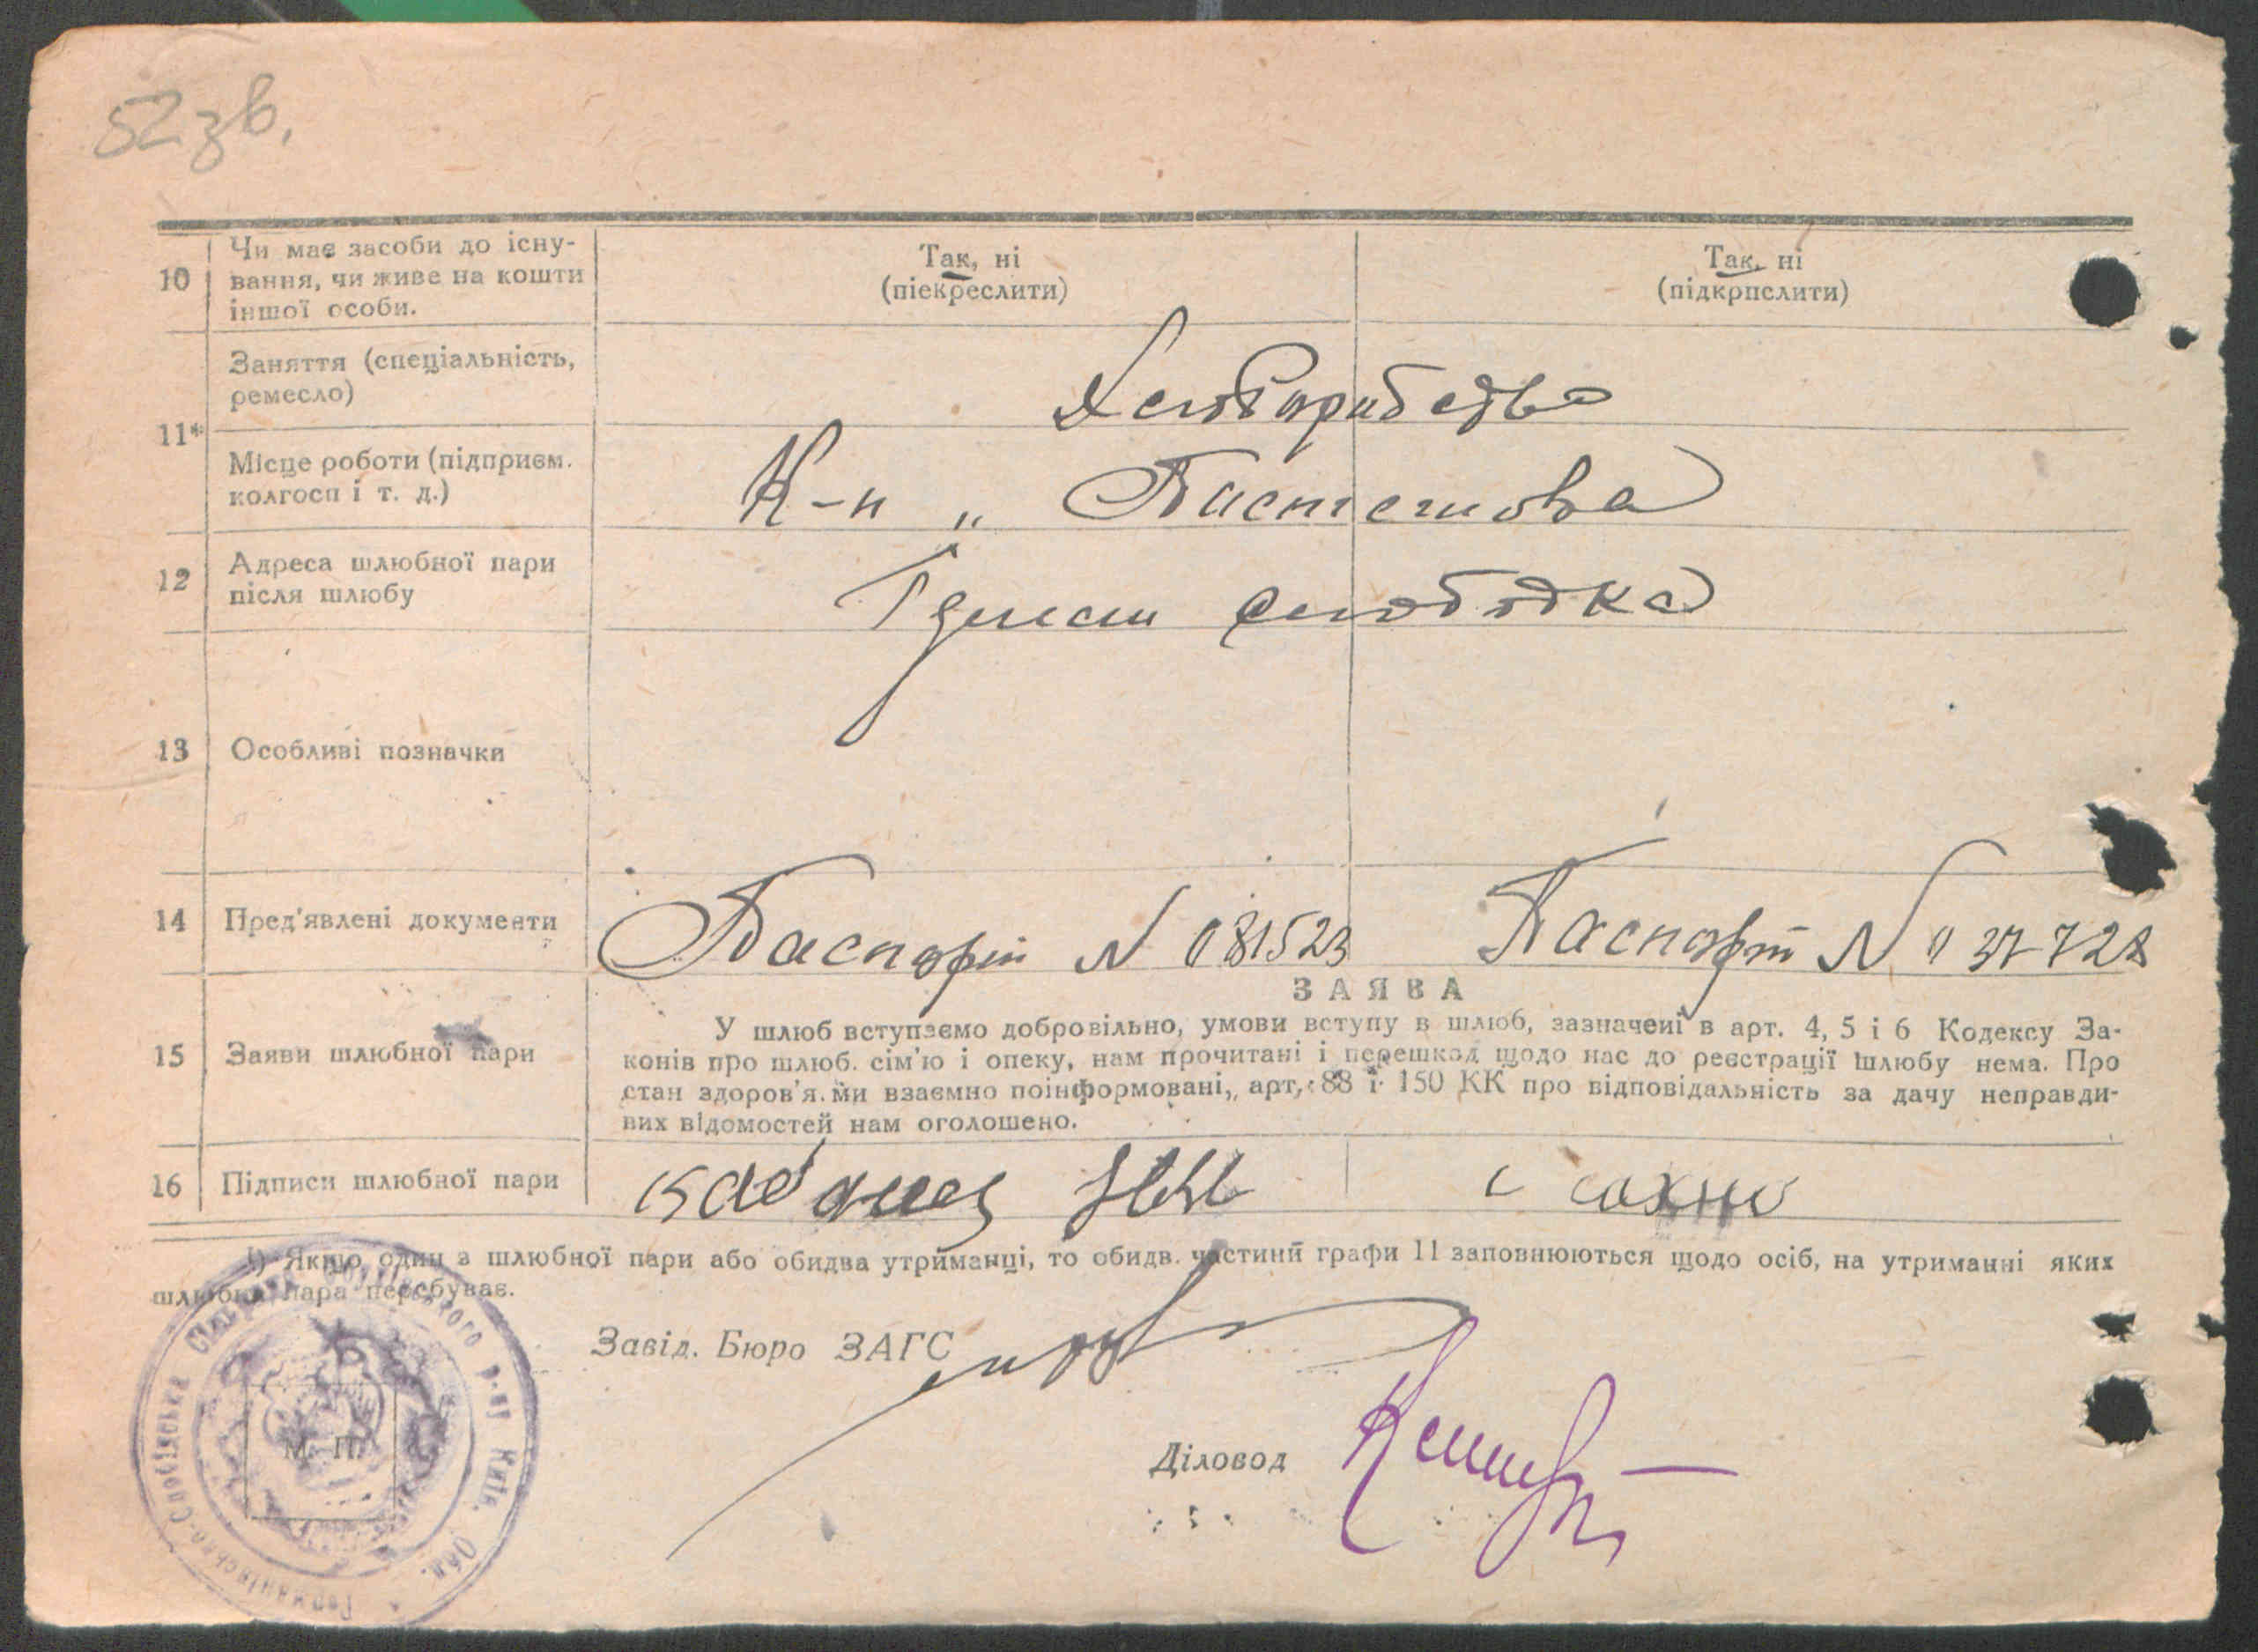 52 зв.
10 Чи має засоби до існу-
вання, чи живе на кошти
іншої особи.
Так, ні
(піекреслити)
Так, ні
(підкрпслити)
11*
Заняття (спеціальність,
ремесло)
Хлібаробство
Місце роботи (підприєм.
колгосп і т. д.)
К-п "
12 Адреса шлюбної пари
після шлюбу
слободка
13 Особливі позначки
14 Пред'явлені документи
Паспорт N 081523 Паспорт N 037728
15 Заяви шлюбної пари
ЗАЯВА
У шлюб вступаємо добровільно, умови вступу в шлюб, зазначені в арт. 4, 5 і 6 Кодексу За-
конів про шлюб. сім'ю і опеку, нам прочитані і перешкод щодо нас до реєстрації шлюбу нема. Про
стан здоров'я ми взаємно поінформовані, арт, 88 і 150 КК про відповідальність за дачу неправди-
вих відомостей нам оголошено.
16 Підписи шлюбної пари
с сахно
1) Якщо один з шлюбної пари або обидва утриманці, то обидв. частини графи 11 заповнюються щодо осіб, на утриманні яких
шлюбна пара перебуває.
Завід. Бюро ЗАГС
М. П.
Діловод
р-ну Київ. Обл.